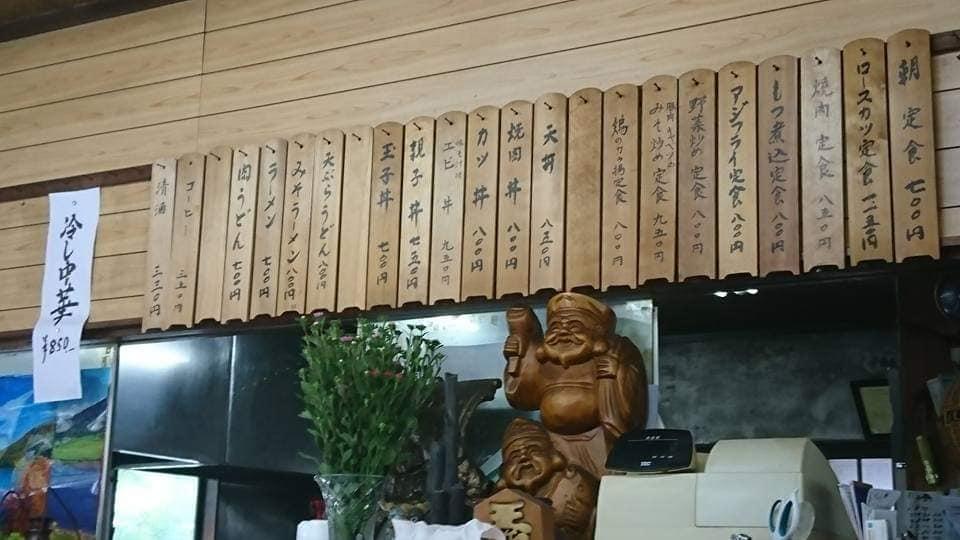 朝定食 七〇〇円
ロースカツ定食 一一五〇円
焼肉定食 八五〇
もつ煮込定食 八〇〇円
アジフライ定食 八〇〇円
野菜炒め定食 八〇〇円
豚肉キャベツの
みそ炒め定食 九五〇円
鶏のカラ揚定食 八〇〇
天丼 八五〇
焼肉丼 八〇〇円
カツ丼 八〇〇円
エビ丼 九五〇
親子丼 七五〇円
玉子丼 七〇〇円
天ぷらうどん 八〇〇
みそラーメン 八〇〇円
ラーメン 七〇〇円
肉うどん 七〇〇円
コーヒー 三五〇円
清酒 三三〇円
冷し中華
¥850